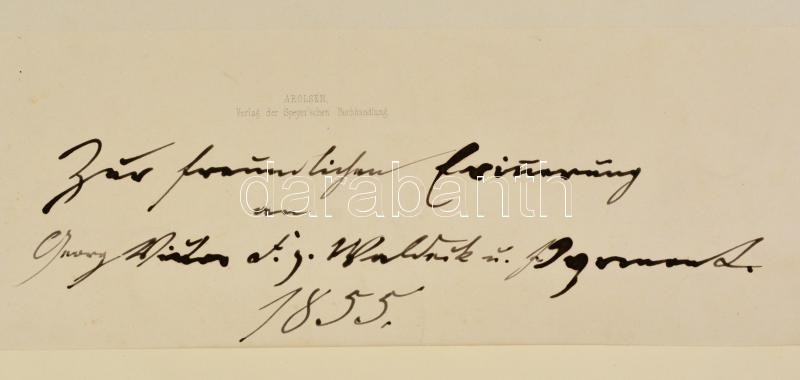 AROLSEN,
Verlag der Speyer'schen Buchhandlung.
Zur freundlichen Erinnerung
an
Georg Victor F. z. Waldeck u. Pyrmont.
1855.
darabanth